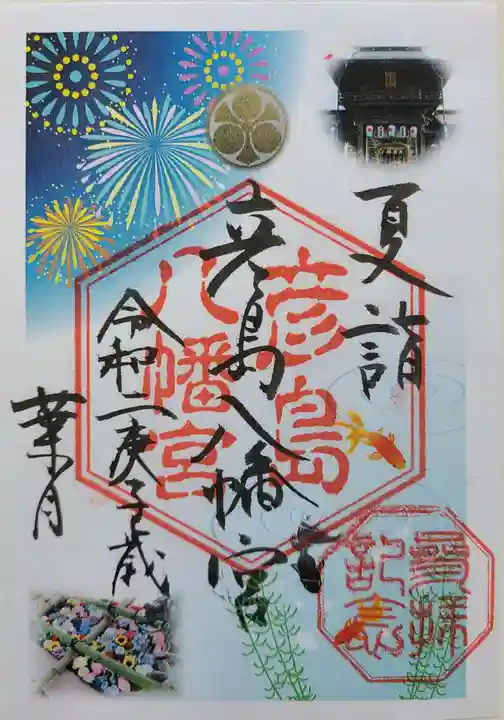 夏詣
彦島八幡宮
令和二庚子歳
葉月
彦島
八幡宮
参拝
記念